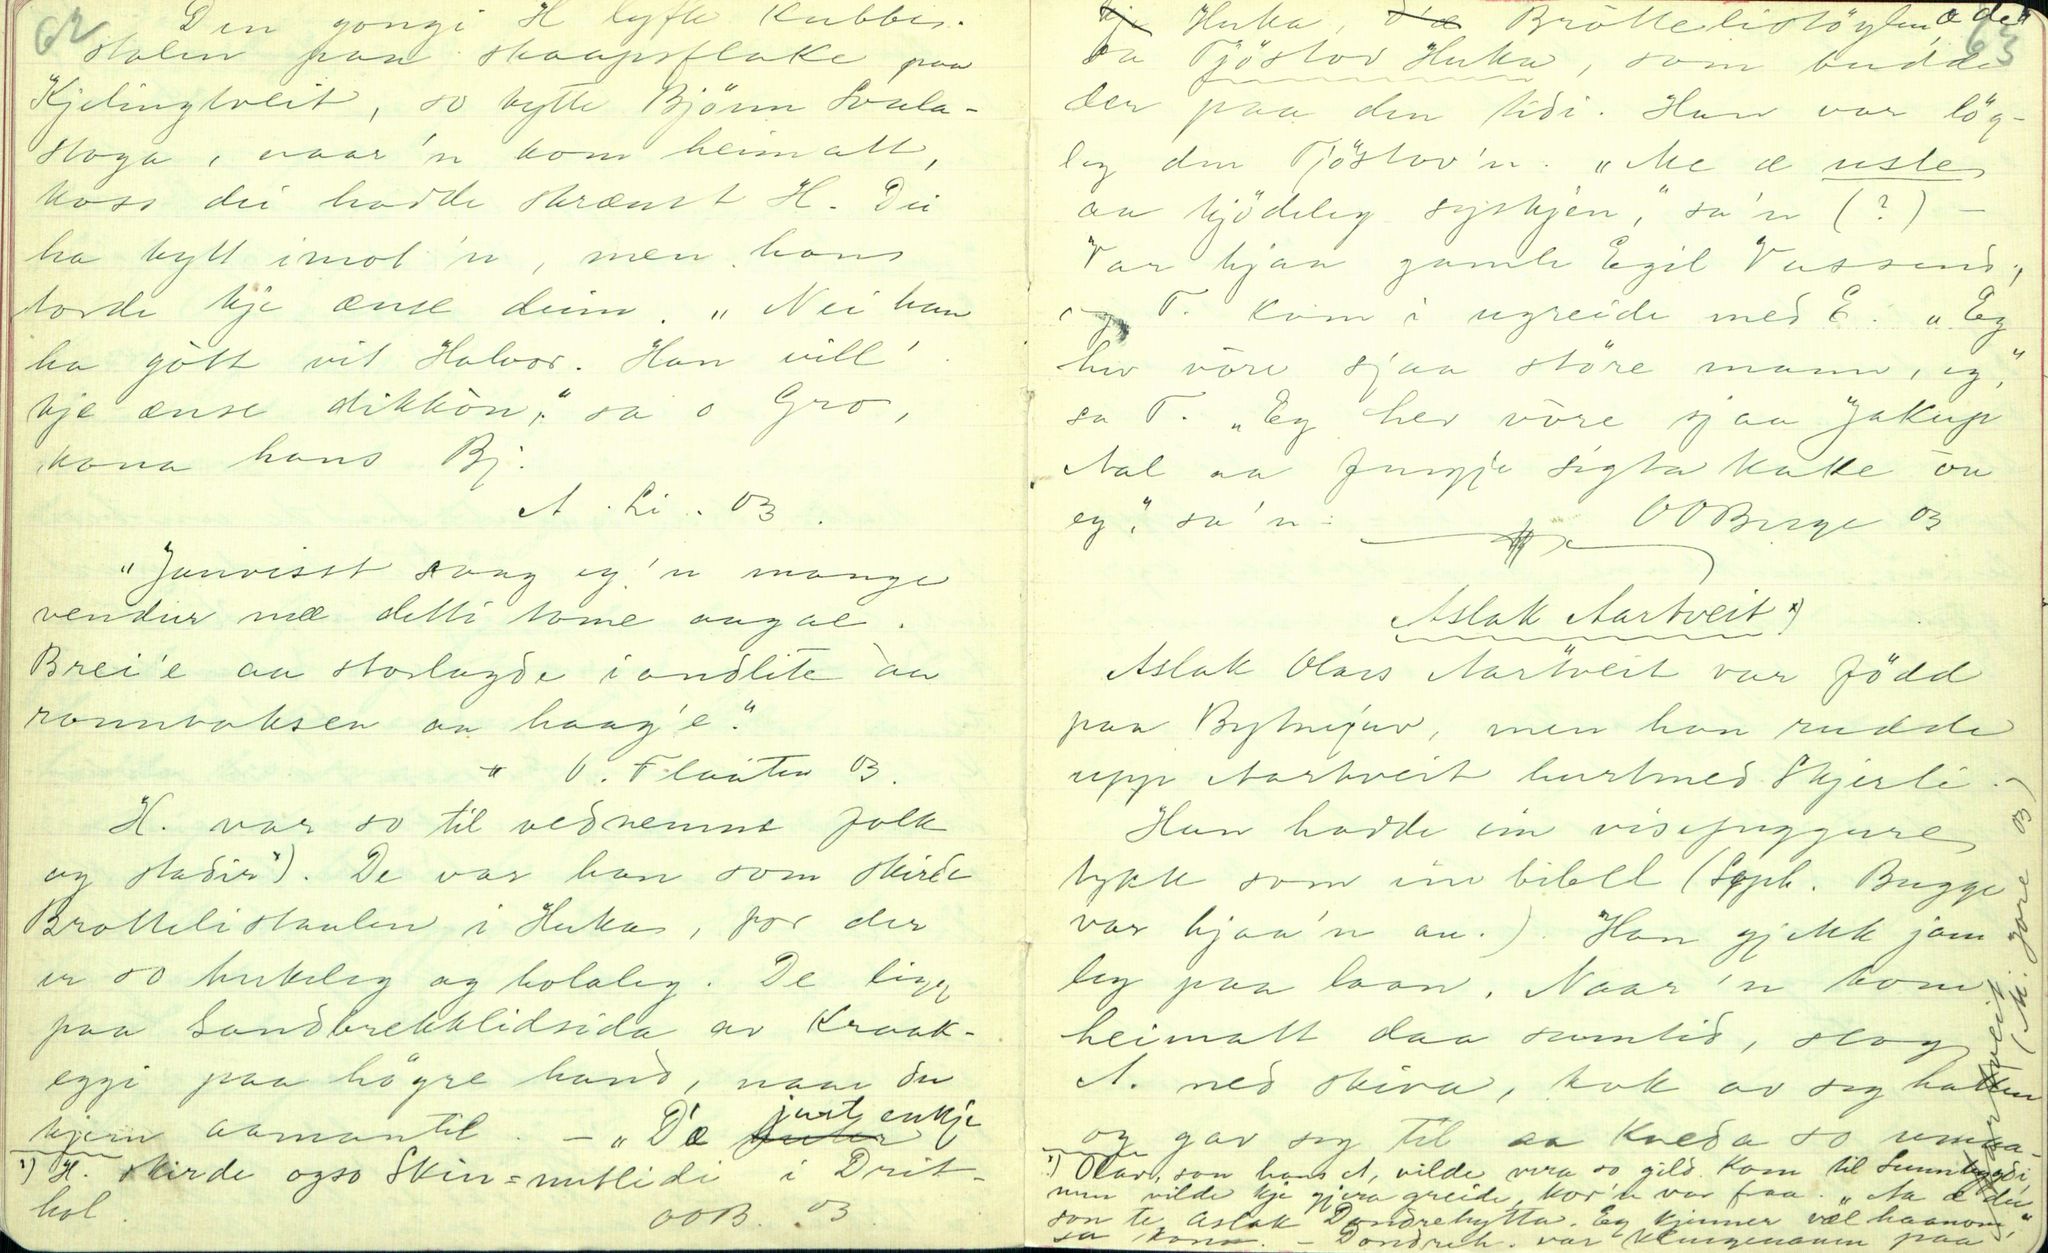 62
Den gongi H lyfte Kubbe-
stolen paa skaapsflake paa
Kjelingtveit, so tytte Bjönn Svala-
stoga, naar'n kom heimatt,
koss dei hadde skræmt H. Dei
ha tytt imot'n, men hans
torde kje ænse deim. „Nei han
ha gött vit Halvor. Han vill'
kje ænse dikkön," sa o Gro,
kona hans Bj.
A. Li. 03.
„Jauvisst saag eg'n mange
vendur mæ detti tome augae.
Brei'e aa storlagde i andlite aa
ramvaksen aa haag'e."
O. Flaaten 03.
H. var so til vednemne folk
og stadir*). De var han som skirde
Brottelistaulen i Huka, for der
er so hukeleg og holaleg. De ligg
paa Sandbrekklidsida av Kraak-
eggi paa högre hand, naar du
kjem aamantil. — „D'æ just enkje
*) H. skirde ogso Skin-nutlidi i Drit-
hol. OOB. 03
63
kje Huka, d'æ Brottelistöylen, æ de"
sa Tjöstov Huka, som budde
der paa den tidi. Han var lög-
leg den Tjöstov'n. „Me æ usle
aa kjödeleg syskjen," sa'n (?) —
Var hjaa gamle Egil Vassend,
og T. kom i ugreide med E. „Eg
hev vöre sjaa störe mann, eg,"
sa T. „Eg hev vöre sjaa Jakup
Aal aa fungje sigta kake öu
eg," sa'n. OOBerge 03
Aslak Aartveit *)
Aslak Olavs Aartveit var född
paa Bytnejuv, men han rudde
upp Aartveit burtmed Skjerli.
Han hadde ein visefuggure
tykk som ein bibel (Soph. Bugge
var hjaa'n au.). Han gjekk jam
leg paa laan. Naar'n kom
heimatt daa sumtid, slog
A. ned skiva, tok av seg hatten
og gav seg til aa kveda so umaa-
*) Olav, son hans A, vilde vera so gild. Kom til Sunnbygdi,
men vilde kje gjera greide, kor'n var fraa. „Aa æ du
son te Aslak Dondrehytta. Eg kjenner væl haanom,"
sa kona. — Dondreh. var klengenamn paa
Aartveit (M. Jore 03)